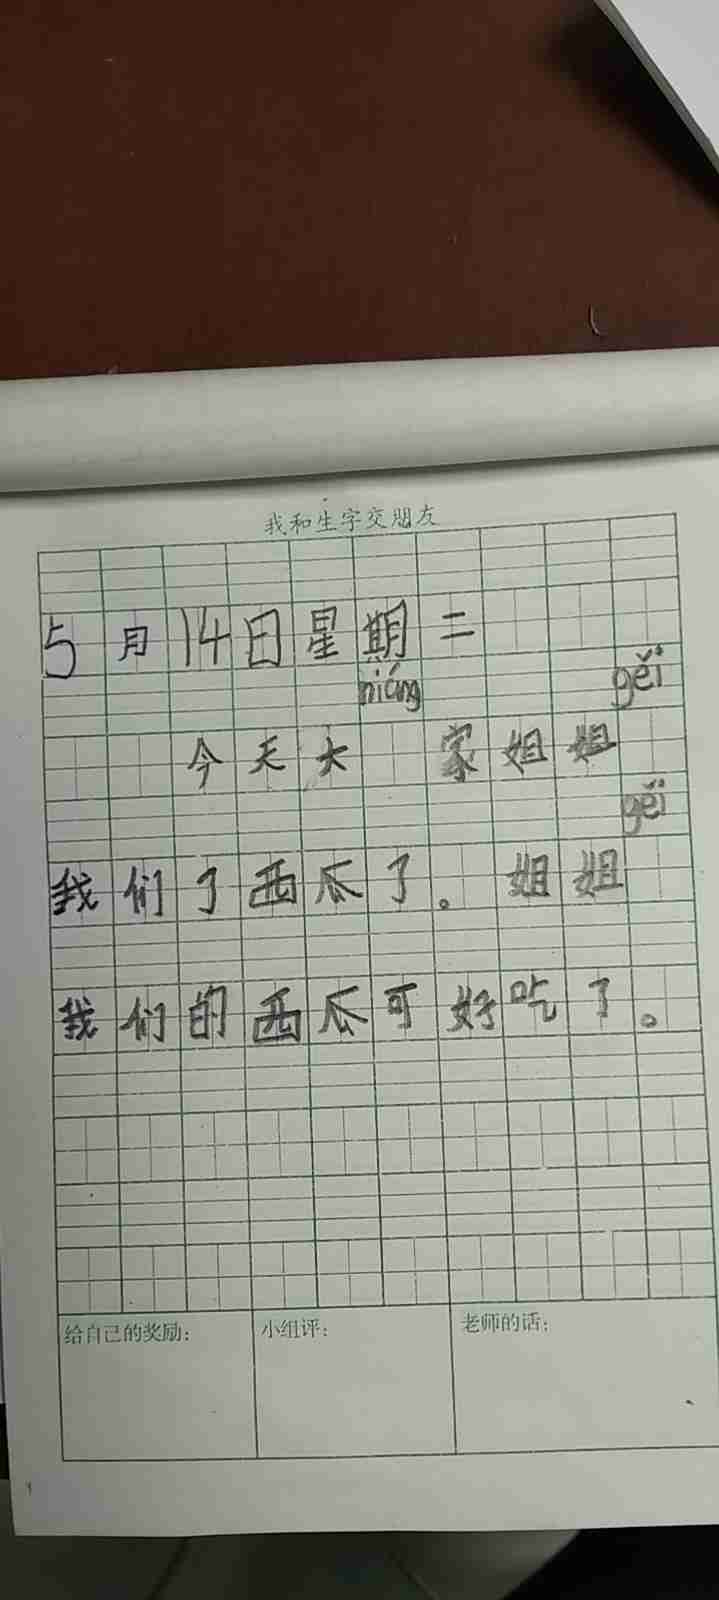 我和生字交朋友
5月14日星期二
niáng gěi
今天大 家姐姐
gěi
我们了西瓜了。姐姐
我们的西瓜可好吃了。
给自己的奖励: 小组评: 老师的话: